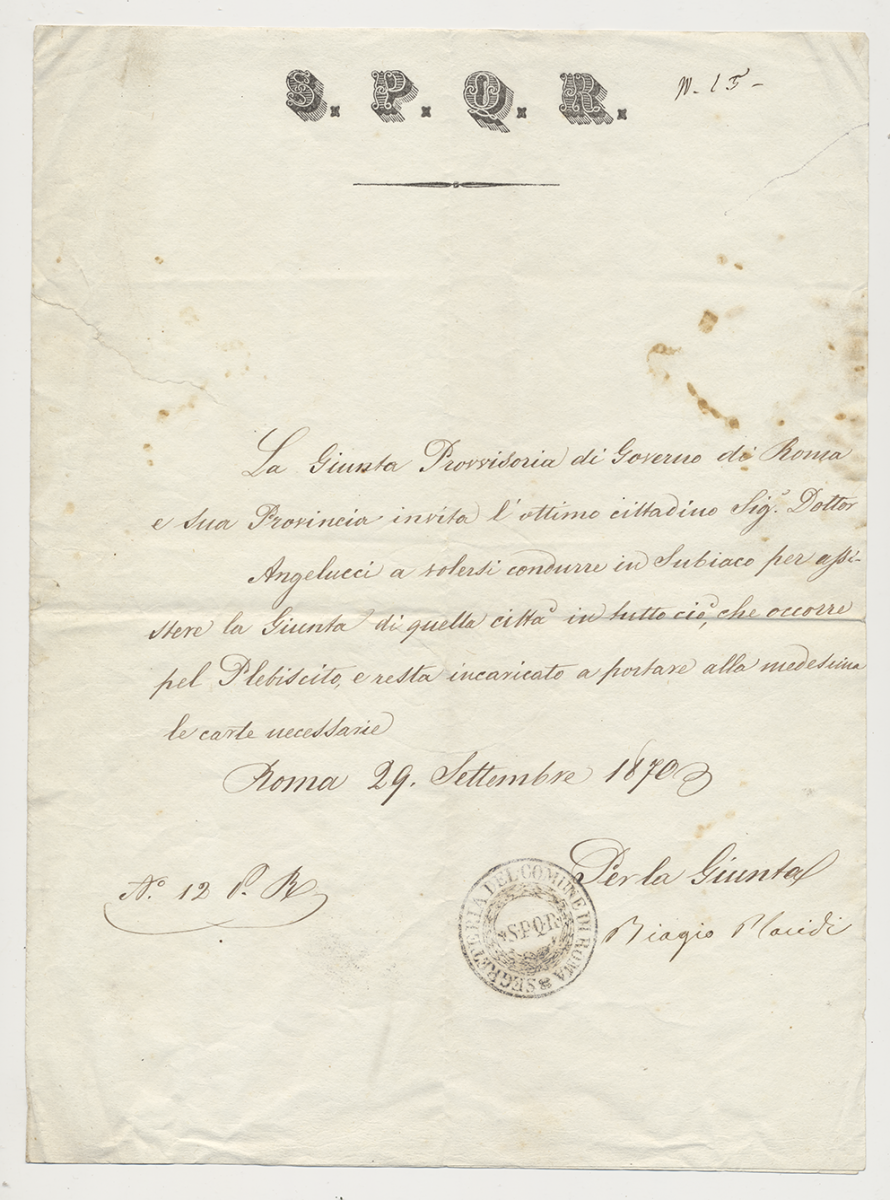 S. P. Q. R.
N. 15 -
La Giunta Provvisoria di Governo di Roma
e sua Provincia invita l'ottimo cittadino Sig.r Dottor
Angelucci a volersi condurre in Subiaco per assi-
stere la Giunta di quella città in tutto ciò, che occorre
pel Plebiscito, e resta incaricato a portare alla medesima
le carte necessarie
Roma 29. Settembre 1870
Per la Giunta
N.o 12 P. R.
Biagio Placidi
SEGRETERIA DEL COMUNE DI ROMA
S.P.Q.R.